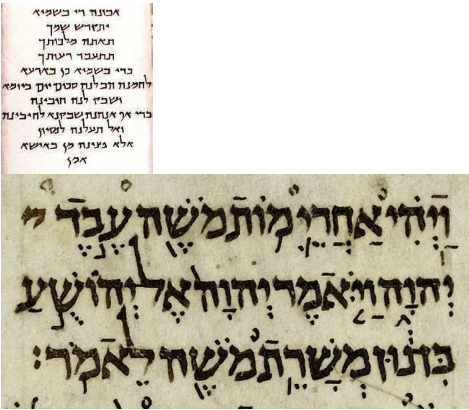 אבונה די בשמיא
יתקדש שמך
תאתה מלכותך
תתעבד רעותך
כדי בשמיא כן בארעא
לחמנה הב לנה סכום יום ביומא
ושבק לנה חובינה
כדי אף אנחנה שבקנא לחיבינה
ואל תעלנה לנסיון
אלא פצינה מן באישא
אמן
וַיְהִי אַחֲרֵי מוֹת מֹשֶׁה עֶבֶד י
יְהוָה וַיֹּאמֶר יְהוָה אֶל יְהוֹשֻׁעַ
בִּן נוּן מְשָׁרֵת מֹשֶׁה לֵאמֹר׃